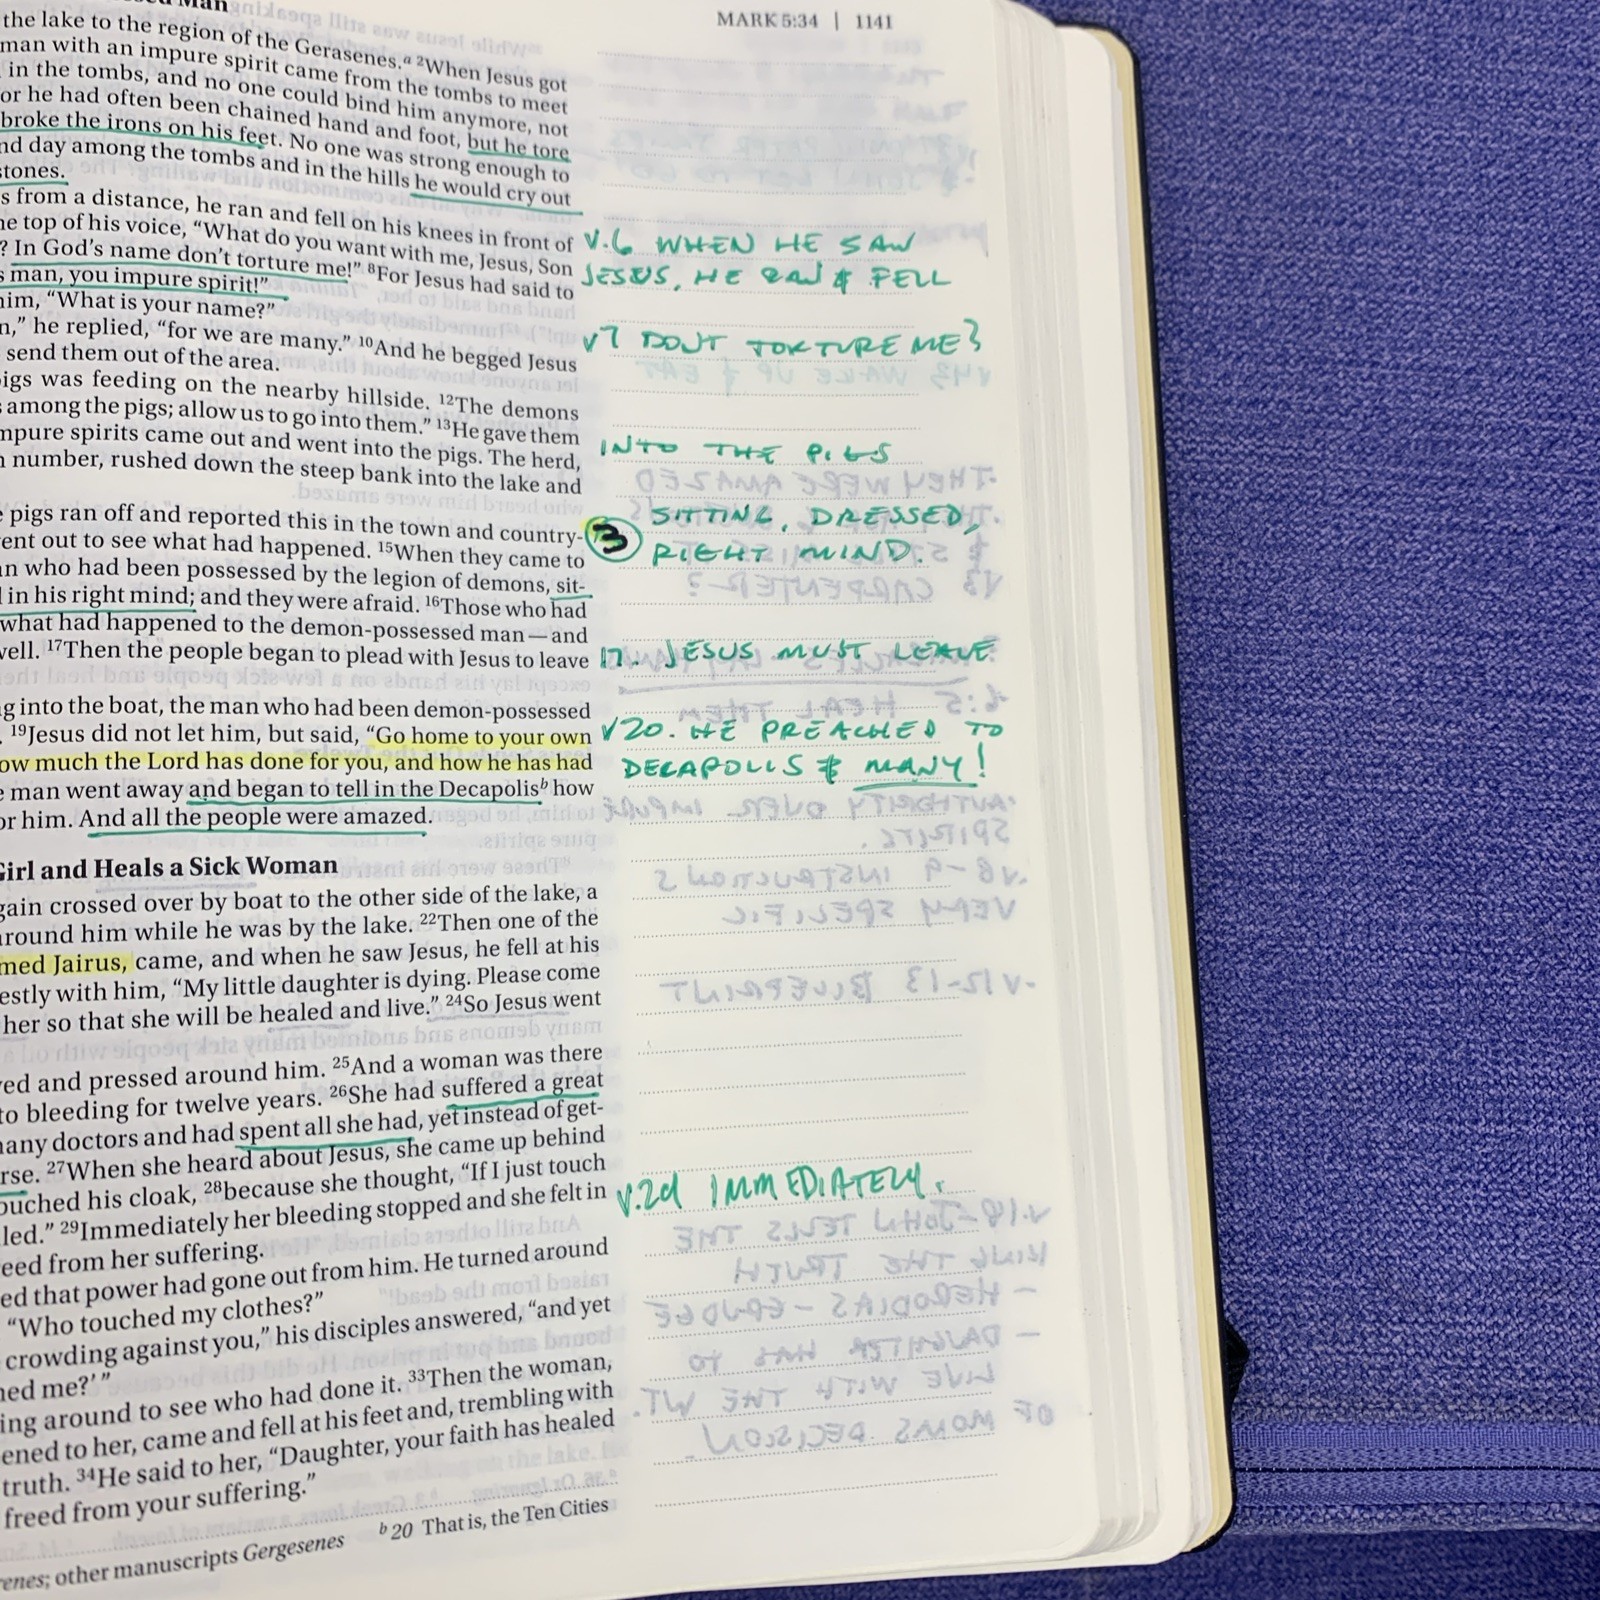 MARK 5:34 | 1141
the lake to the region of the Gerasenes.a 2When Jesus got
man with an impure spirit came from the tombs to meet
in the tombs, and no one could bind him anymore, not
or he had often been chained hand and foot, but he tore
broke the irons on his feet. No one was strong enough to
nd day among the tombs and in the hills he would cry out
stones.
s from a distance, he ran and fell on his knees in front of
he top of his voice, “What do you want with me, Jesus, Son
? In God’s name don’t torture me!” 8For Jesus had said to
s man, you impure spirit!”
him, “What is your name?”
n,” he replied, “for we are many.” 10And he begged Jesus
send them out of the area.
igs was feeding on the nearby hillside. 12The demons
among the pigs; allow us to go into them.” 13He gave them
mpure spirits came out and went into the pigs. The herd,
n number, rushed down the steep bank into the lake and
e pigs ran off and reported this in the town and country-
ent out to see what had happened. 15When they came to
n who had been possessed by the legion of demons, sit-
in his right mind; and they were afraid. 16Those who had
what had happened to the demon-possessed man—and
well. 17Then the people began to plead with Jesus to leave
g into the boat, the man who had been demon-possessed
. 19Jesus did not let him, but said, “Go home to your own
ow much the Lord has done for you, and how he has had
e man went away and began to tell in the Decapolisb how
or him. And all the people were amazed.
Girl and Heals a Sick Woman
gain crossed over by boat to the other side of the lake, a
around him while he was by the lake. 22Then one of the
med Jairus, came, and when he saw Jesus, he fell at his
estly with him, “My little daughter is dying. Please come
her so that she will be healed and live.” 24So Jesus went
ed and pressed around him. 25And a woman was there
to bleeding for twelve years. 26She had suffered a great
many doctors and had spent all she had, yet instead of get-
rse. 27When she heard about Jesus, she came up behind
ouched his cloak, 28because she thought, “If I just touch
led.” 29Immediately her bleeding stopped and she felt in
eed from her suffering.
ed that power had gone out from him. He turned around
“Who touched my clothes?”
crowding against you,” his disciples answered, “and yet
hed me?’ ”
ing around to see who had done it. 33Then the woman,
ened to her, came and fell at his feet and, trembling with
truth. 34He said to her, “Daughter, your faith has healed
freed from your suffering.”
enes; other manuscripts Gergesenes b 20 That is, the Ten Cities
V.6 WHEN HE SAW
JESUS, HE RAN & FELL
V7 DONT TORTURE ME?
INTO THE PIGS
3 SITTING, DRESSED,
RIGHT MIND.
17. JESUS MUST LEAVE
V20. HE PREACHED TO
DECAPOLIS & MANY!
V.29 IMMEDIATELY.